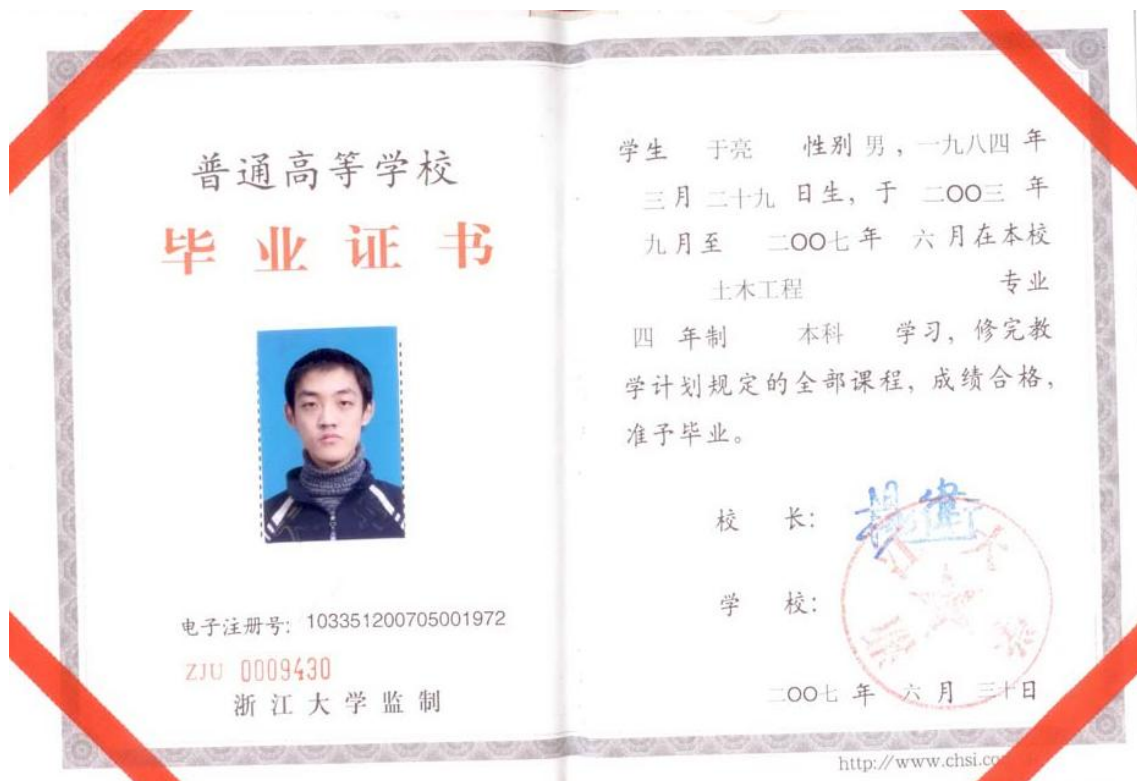 普通高等学校
毕业证书
电子注册号: 103351200705001972
ZJU 0009430
浙江大学监制
学生 于亮 性别 男，一九八四 年
三月 二十九 日生，于 二OO三 年
九月至 二OO七年 六月在本校
土木工程 专业
四 年制 本科 学习，修完教
学计划规定的全部课程，成绩合格，
准予毕业。
校 长：
学 校：
二OO七 年 六 月 三十日
http://www.chsi.co